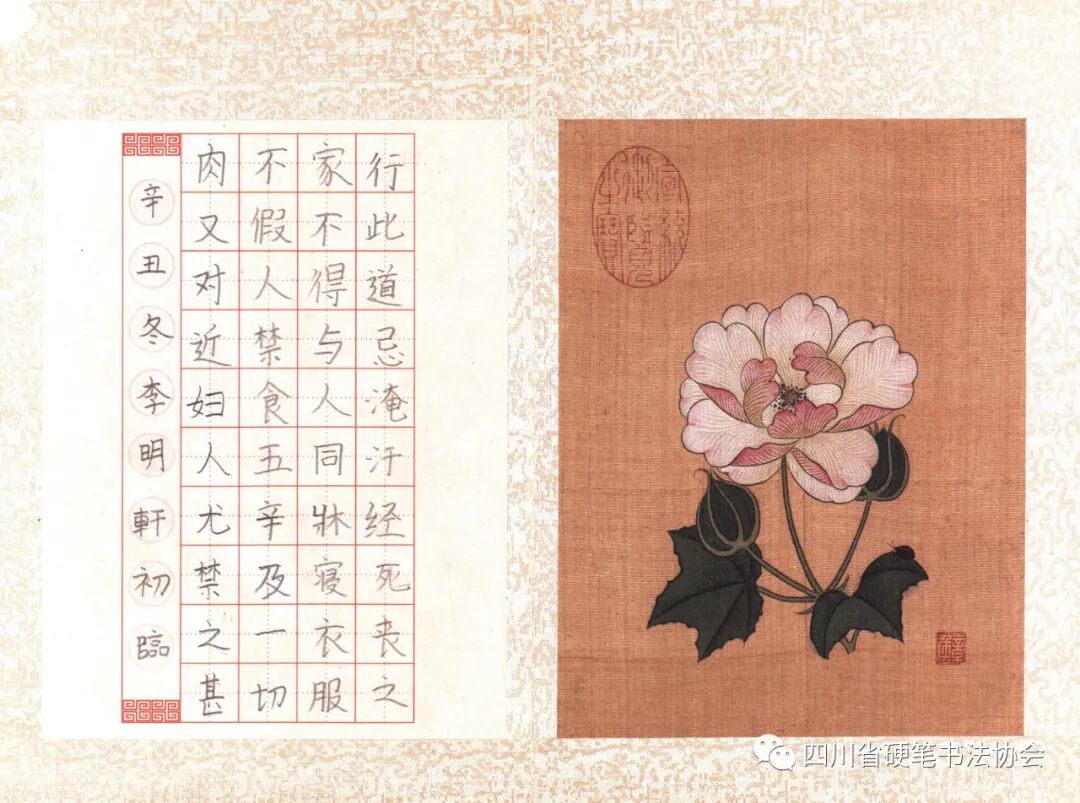 行此道忌淹汙经死丧之
家不得与人同牀寝衣服
不假人禁食五辛及一切
肉又对近妇人尤禁之甚
辛丑冬李明軒初臨
四川省硬笔书法协会